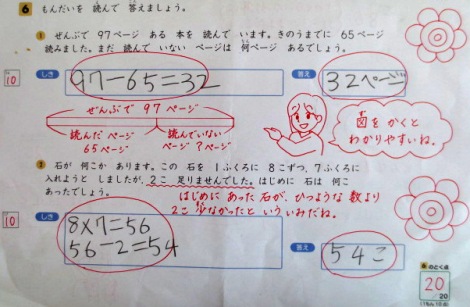 6 もんだいを 読んで 答えましょう。
1 ぜんぶで 97ページ ある 本を 読んで います。きのうまでに 65ページ
読みました。まだ 読んで いない ページは 何ページ あるでしょう。
10 しき 97-65=32 答え 32ページ
ぜんぶで 97ページ
読んだ ページ 読んでいない
65ページ ページ?ページ
図を かくと
わかりやすいね。
2 石が 何こか あります。この 石を 1ふくろに 8こずつ、7ふくろに
入れようと しましたが、2こ 足りませんでした。はじめに 石は 何こ
あったでしょう。
はじめに あった 石が、ひつような 数より
2こ 少なかったと いう いみだね。
10 しき 8×7=56
56-2=54
答え 54こ
6 のとく点
20
/20